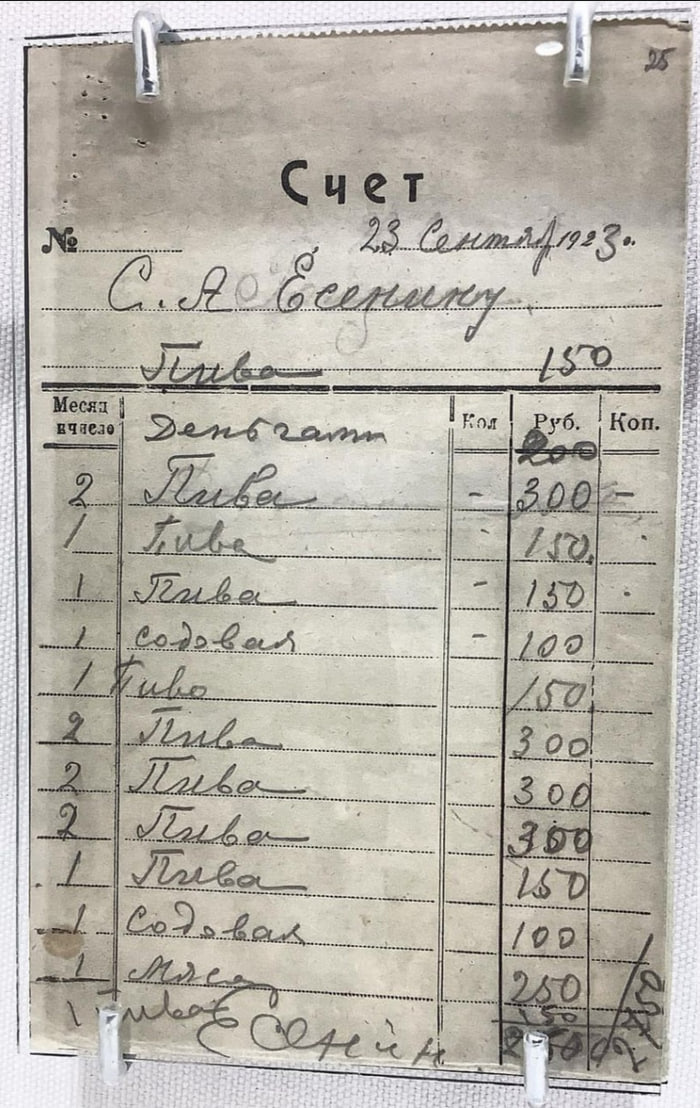 25
Счет
№ 23 Сентяб 1923 г.
С. А Есенину
Пива 150
Месяц и число Деньгами Кол Руб. Коп.
200
2 Пива - 300 -
1 Пива 150
1 Пива - 150
1 содовая - 100
1 Пиво 150
2 Пива 300
2 Пива 300
2 Пива 300
1 Пива 150
1 Содовая 100
1 Мясо 250
1 Пива 150